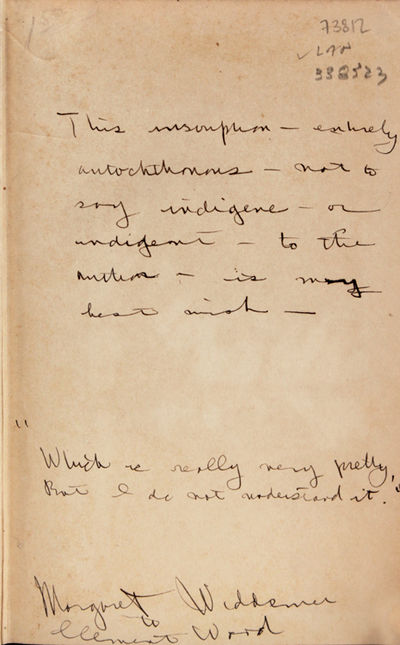 73812
338523
This inscription — entirely
autochthonous — not to
say indigene — or
indigent — to the
author — is my
best wish —
"Which is really very pretty,
But I do not understand it."
Margaret Widdemer
to
Clement Wood